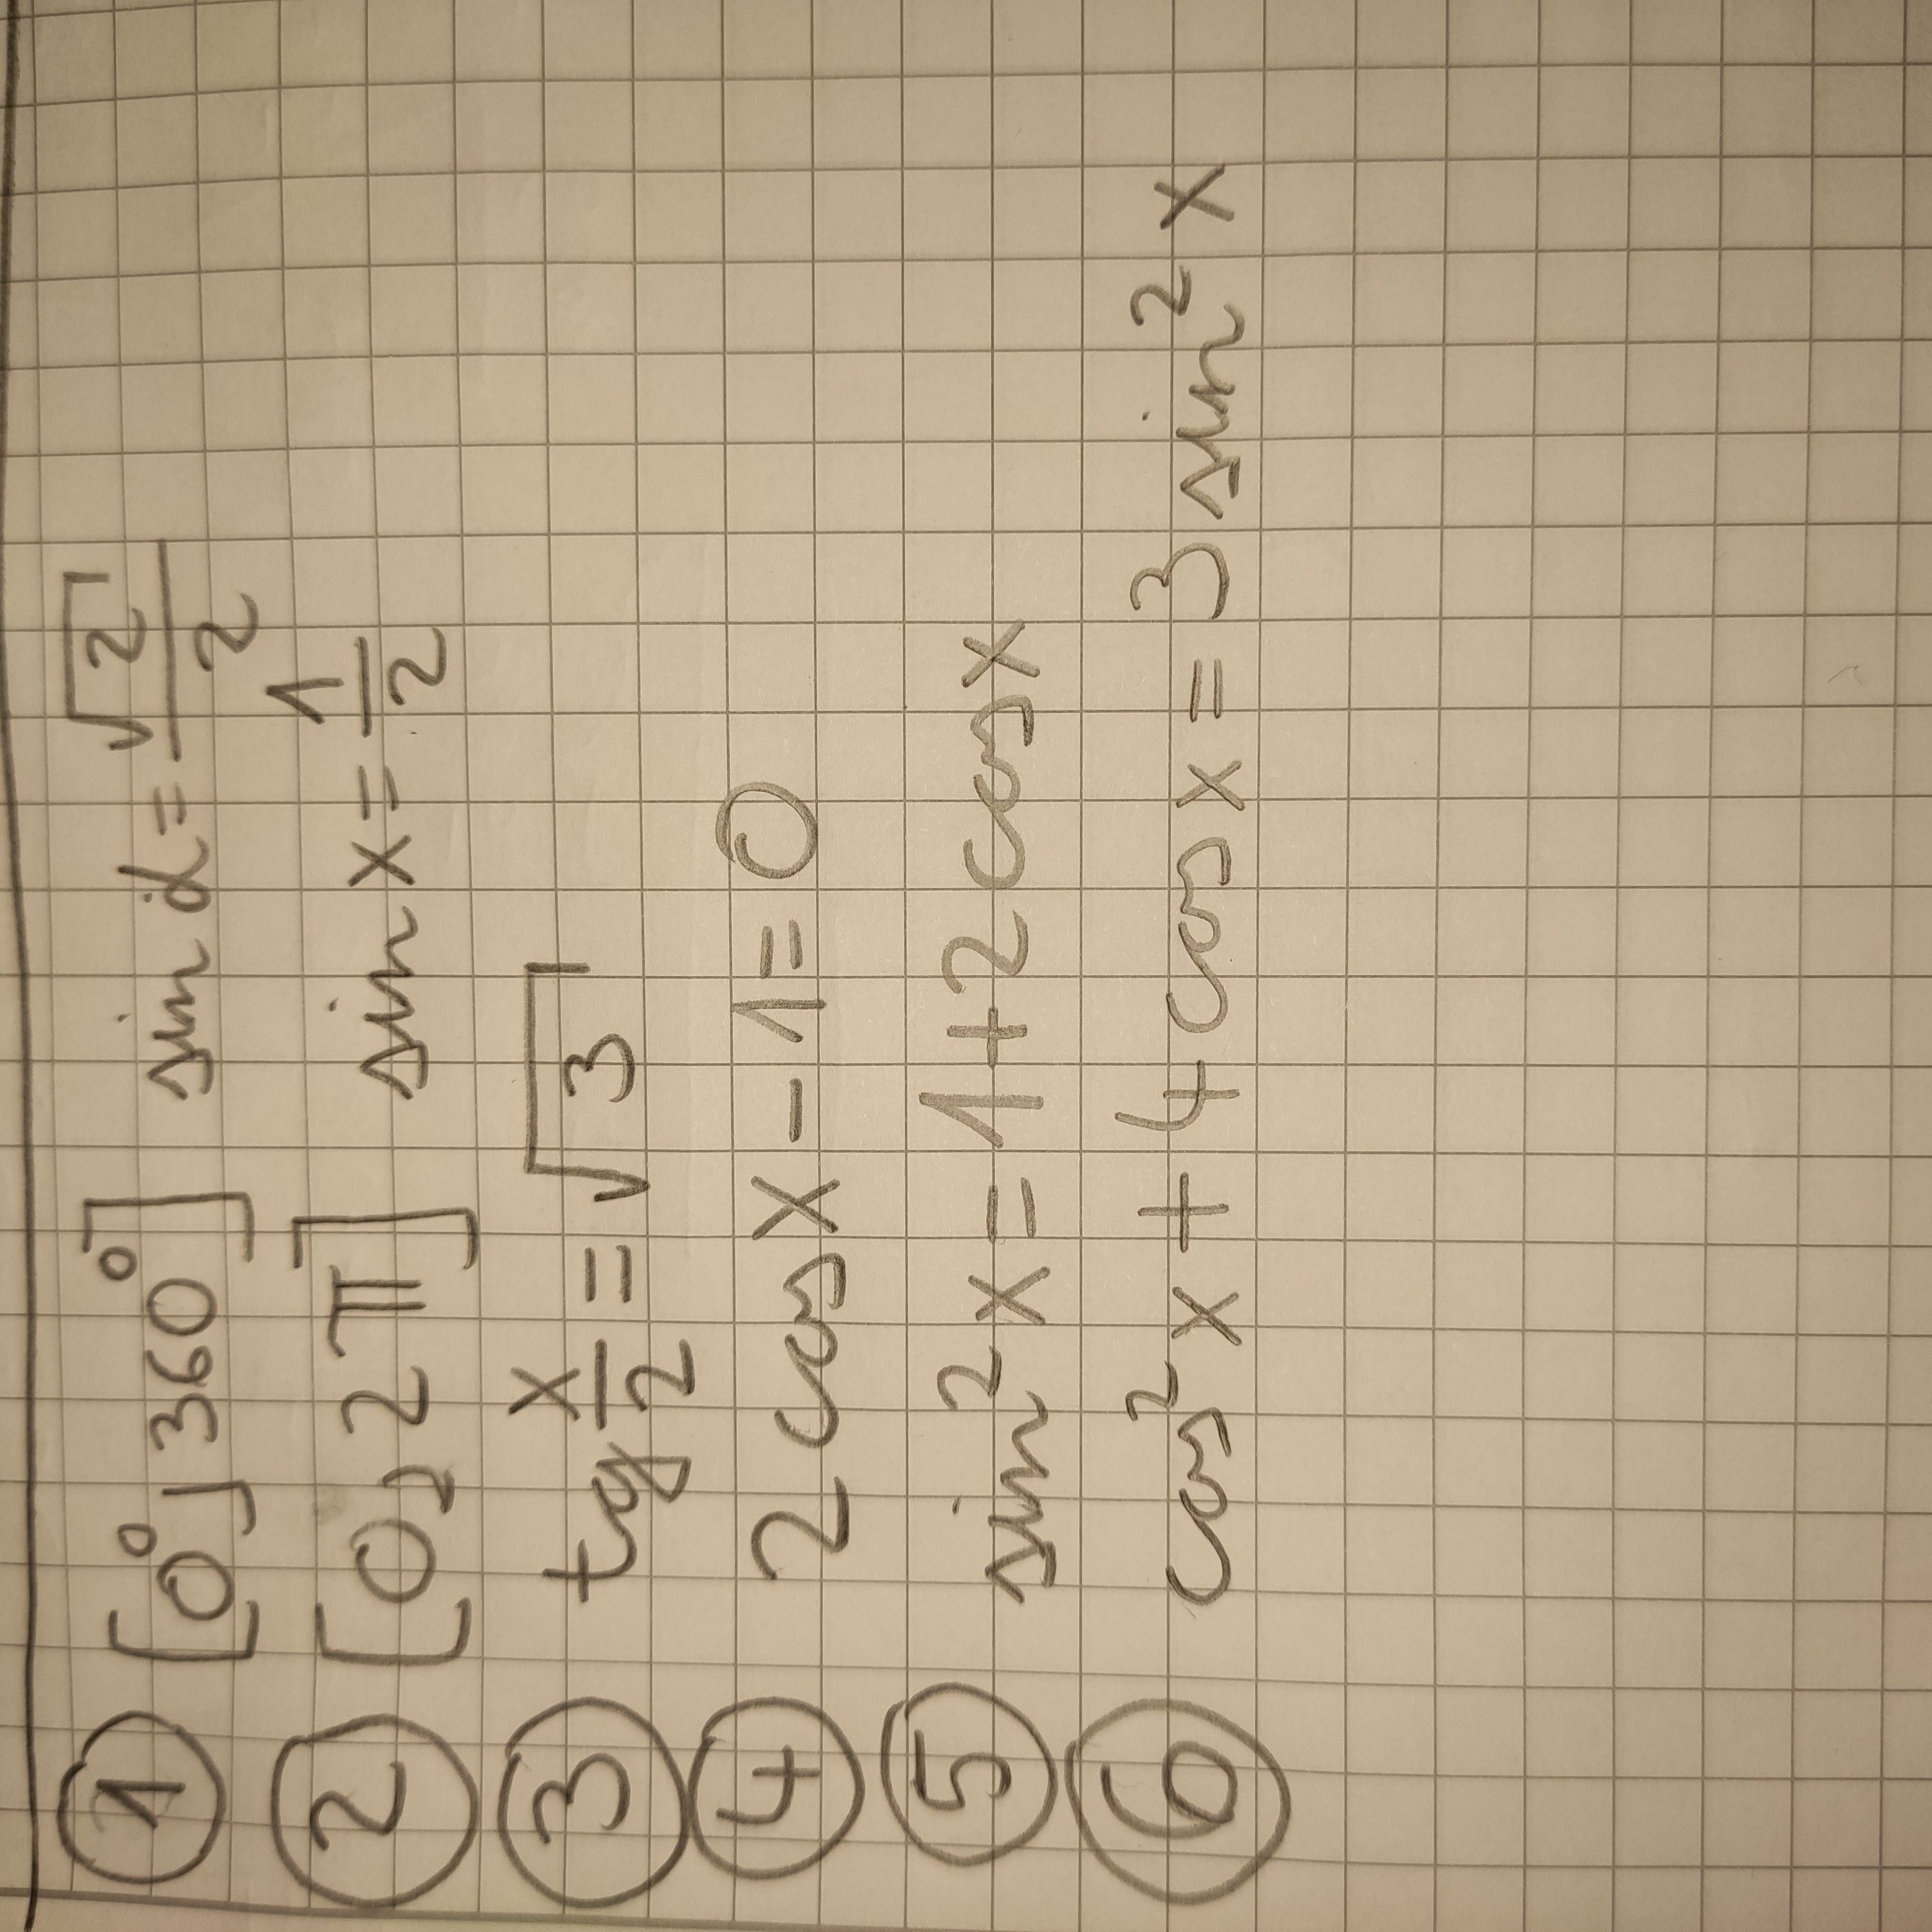 ① [0°, 360°] sin α = √2/2
② [0, 2π] sin x = 1/2
③ tg x/2 = √3
④ 2 cos x − 1 = 0
⑤ sin² x = 1 + 2 cos x
⑥ cos² x + 4 cos x = 3 sin² x